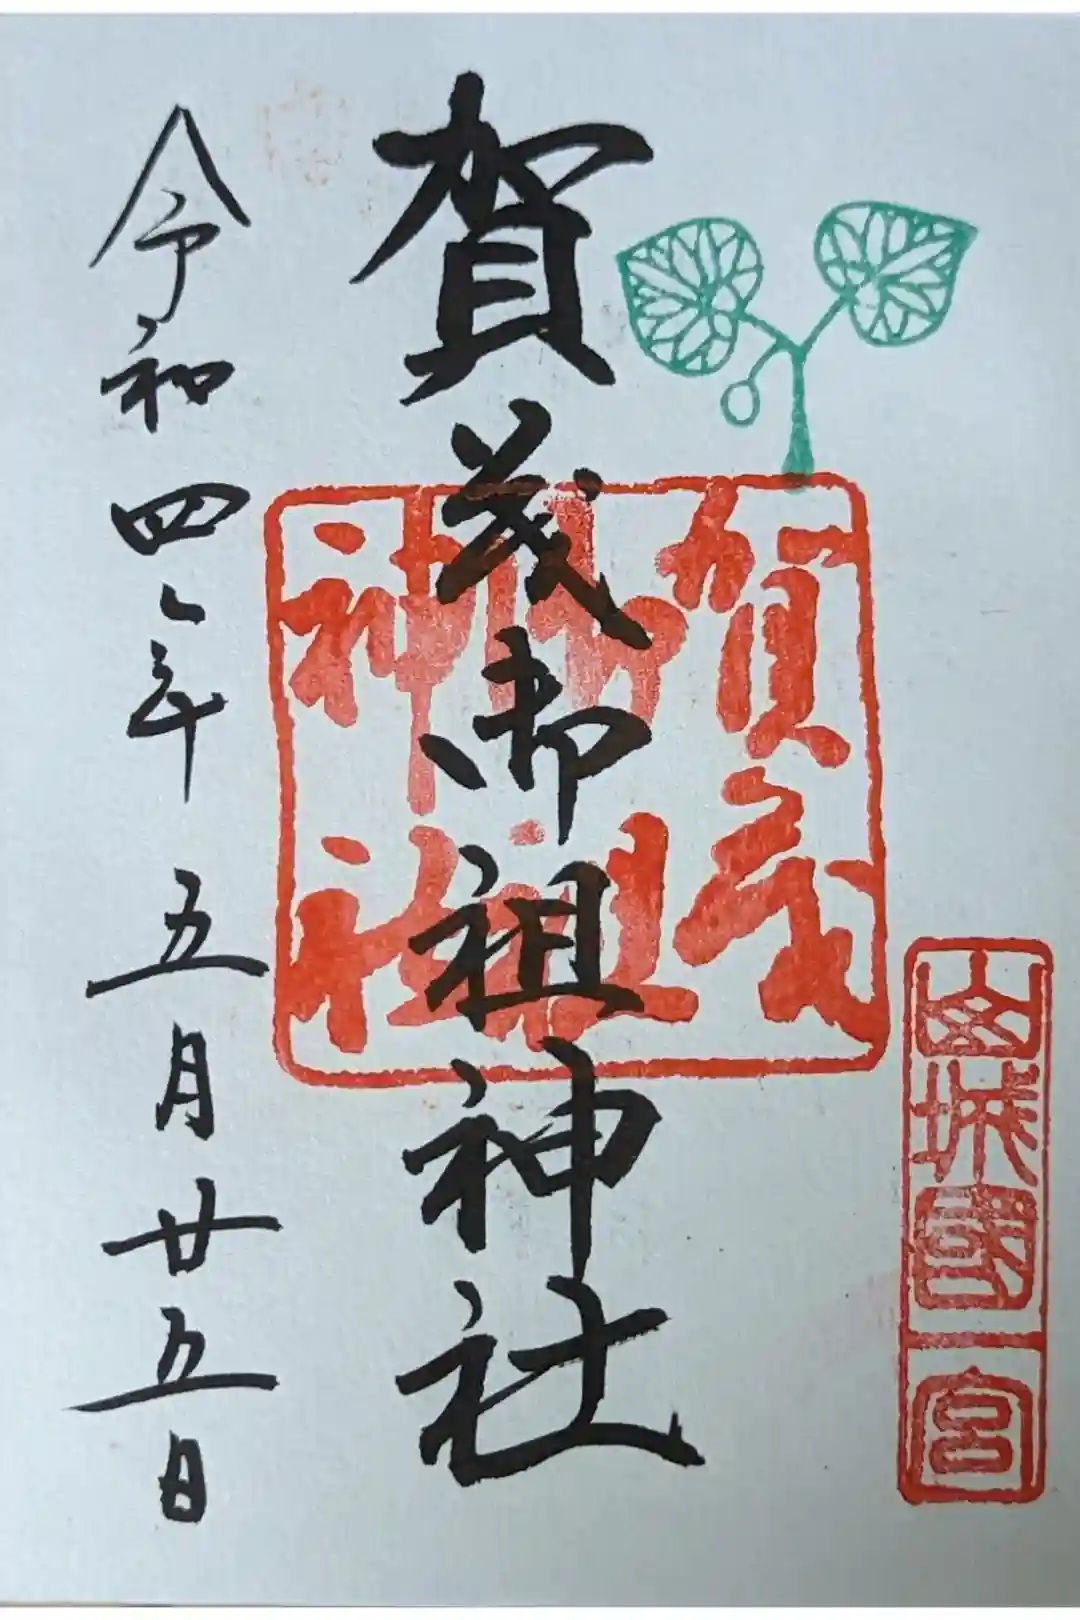 山城國一宮
賀茂御祖神社
賀茂
御祖
神社
令和四年五月廿五日